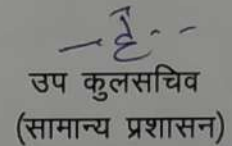 उप कुलसचिव
(सामान्य प्रशासन)